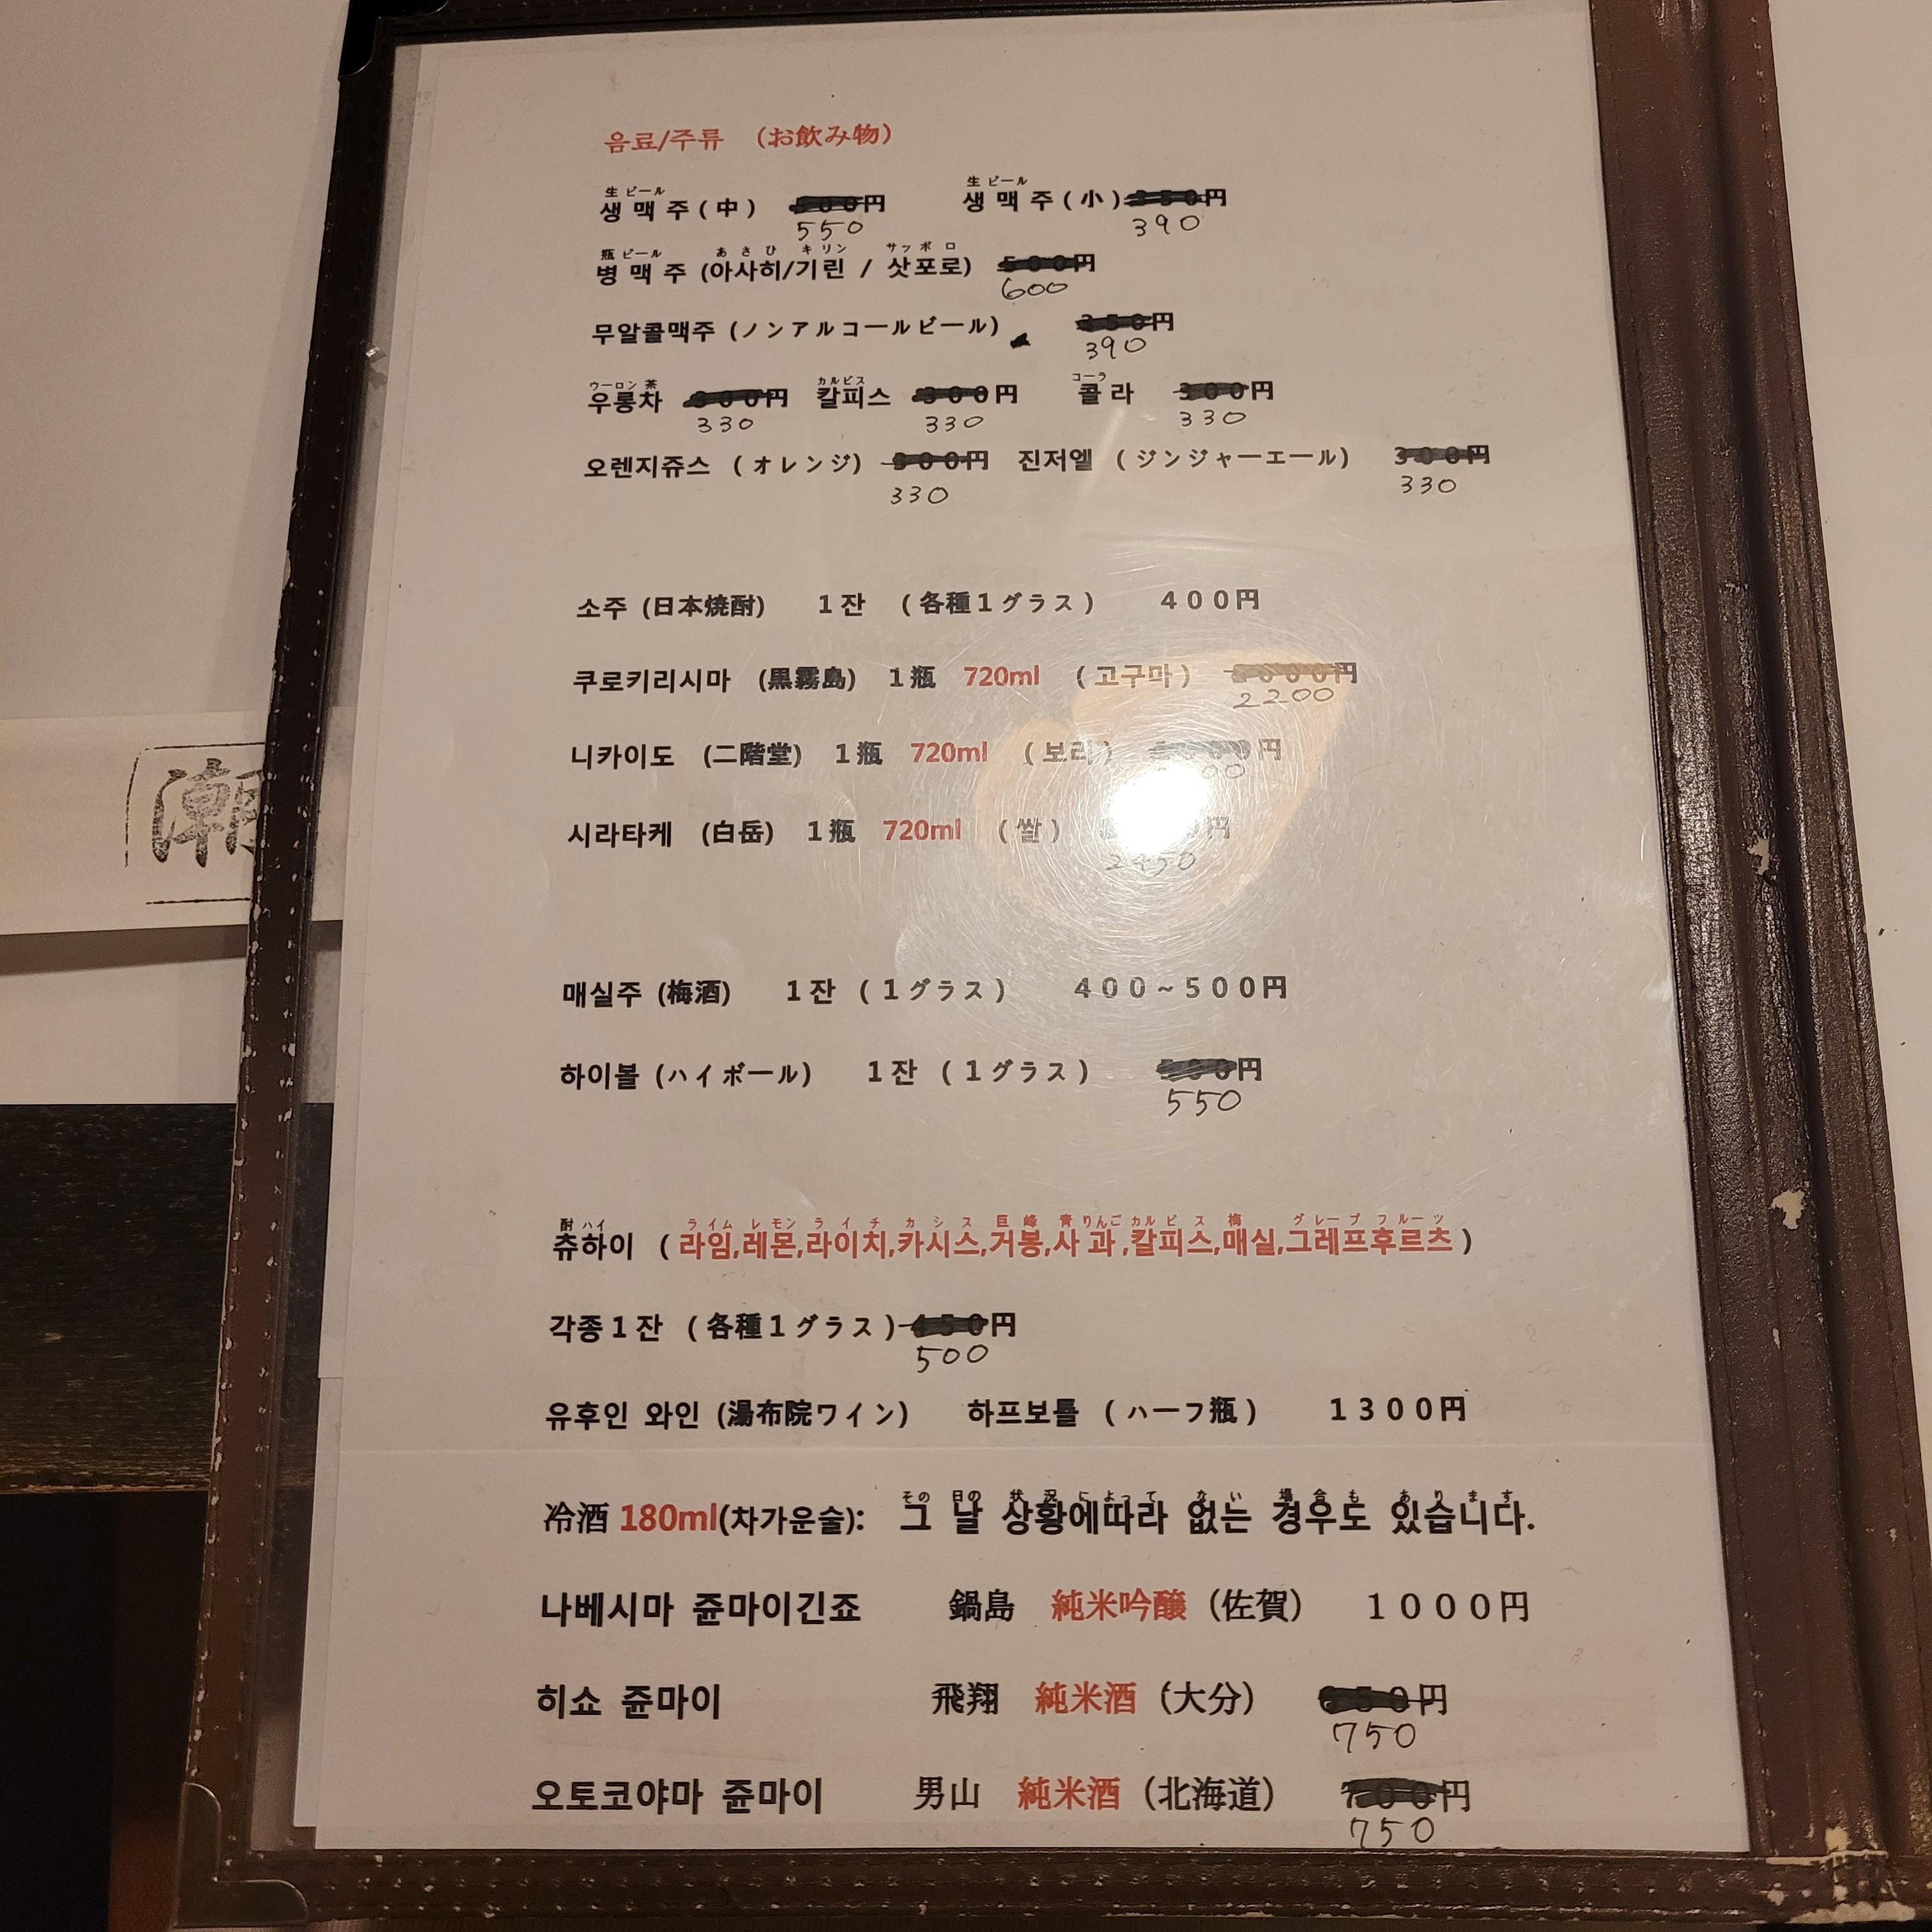 음료/주류 (お飲み物)
生 ビール 生 ビール
생 맥 주 ( 中 ) 500円 생 맥 주 ( 小 ) 350円
550 390
瓶 ビール あ さ ひ キ リン サッ ポ ロ
병 맥 주 (아사히/기린 / 삿포로) 500円
600
무알콜맥주 (ノンアルコールビール) 350円
390
ウーロン 茶 カルピス コーラ
우롱차 300円 칼피스 300円 콜 라 300円
330 330 330
오렌지쥬스 ( オレンジ) 300円 진저엘 ( ジンジャーエール) 300円
330 330
소주 (日本焼酎) 1잔 ( 各種1グラス ) 400円
쿠로키리시마 (黒霧島) 1瓶 720ml ( 고구마 ) 円
2200
니카이도 (二階堂) 1瓶 720ml ( 보리 ) 円
시라타케 (白岳) 1瓶 720ml ( 쌀 ) 円
2450
매실주 (梅酒) 1잔 ( 1グラス ) 400~500円
하이볼 (ハイボール) 1잔 ( 1グラス ) 円
550
酎 ハイ ライム レモン ライチ カシス 巨峰 青りんご カルピス 梅 グレープフルーツ
츄하이 ( 라임,레몬,라이치,카시스,거봉,사 과 ,칼피스,매실,그레프후르츠 )
각종1잔 ( 各種1グラス ) 450円
500
유후인 와인 (湯布院ワイン) 하프보틀 ( ハーフ瓶 ) 1300円
その 日の 状 況 に よって な い 場 合 も あ り ま す
冷酒 180ml(차가운술): 그 날 상황에따라 없는 경우도 있습니다.
나베시마 쥰마이긴죠 鍋島 純米吟醸 (佐賀) 1000円
히쇼 쥰마이 飛翔 純米酒 (大分) 円
750
오토코야마 쥰마이 男山 純米酒 (北海道) 700円
750